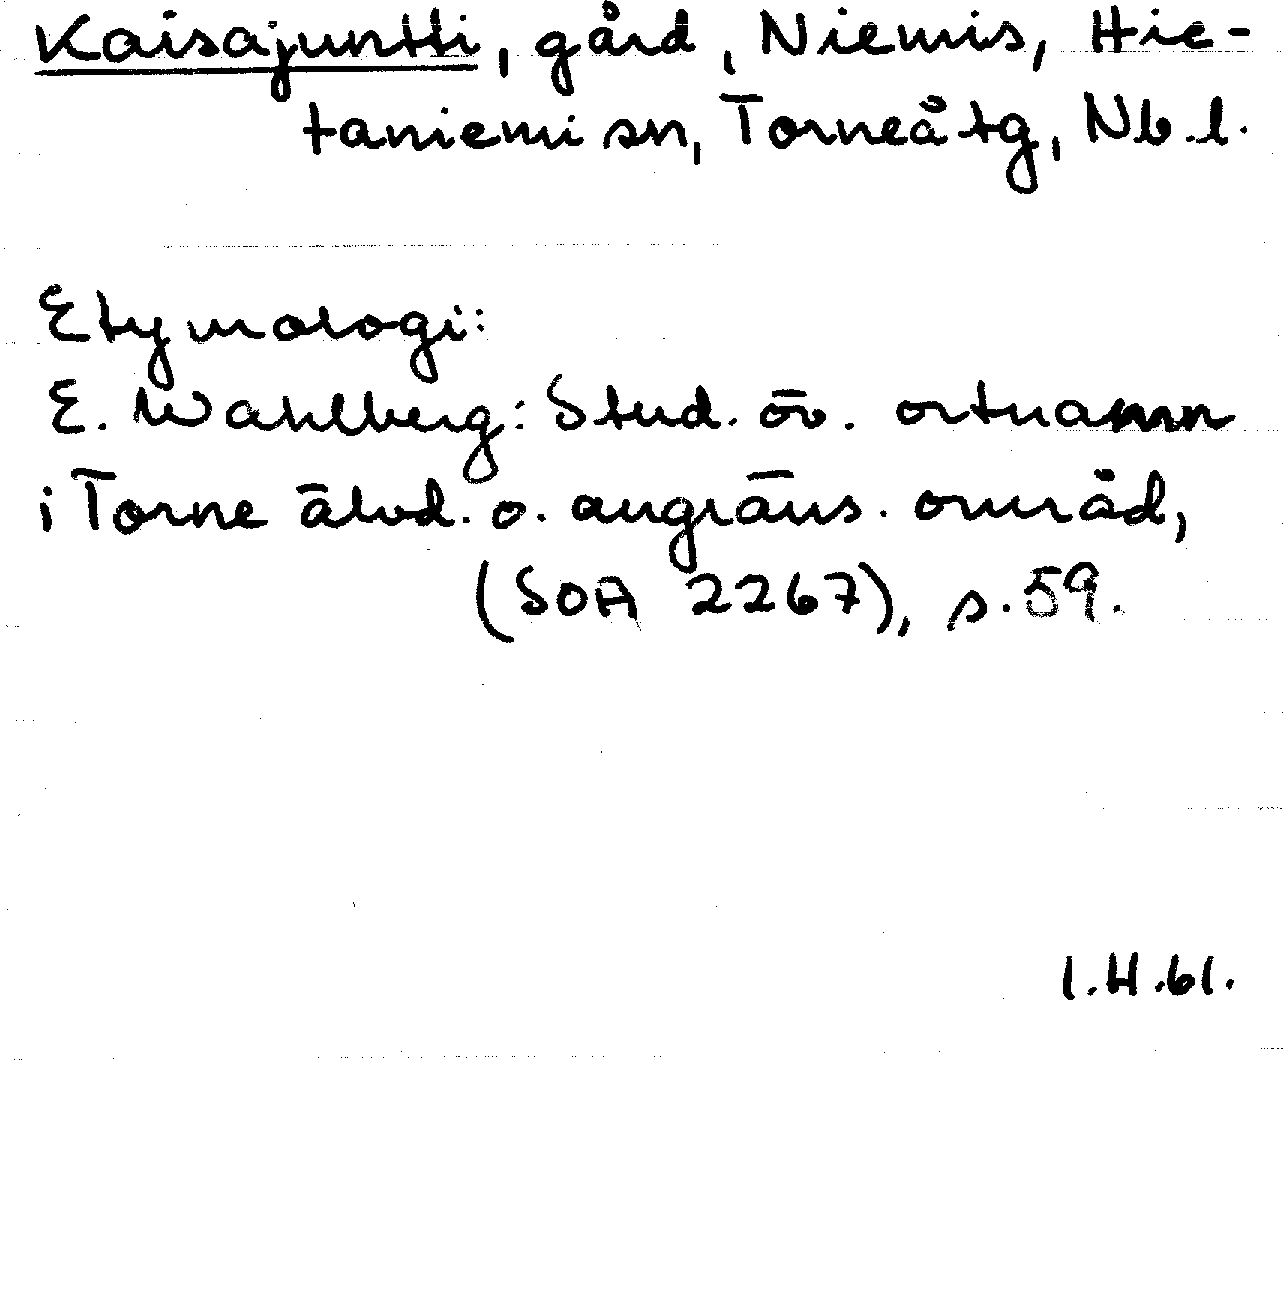 Kaisajuntti, gård, Niemis, Hie-
taniemi sn, Torneå tg, Nb.l.
Etymologi:
E. Wahlberg: Stud. öv. ortnamn
i Torne älvd. o. angräns. område,
(SOA 2267), s. 59.
I.H.61.